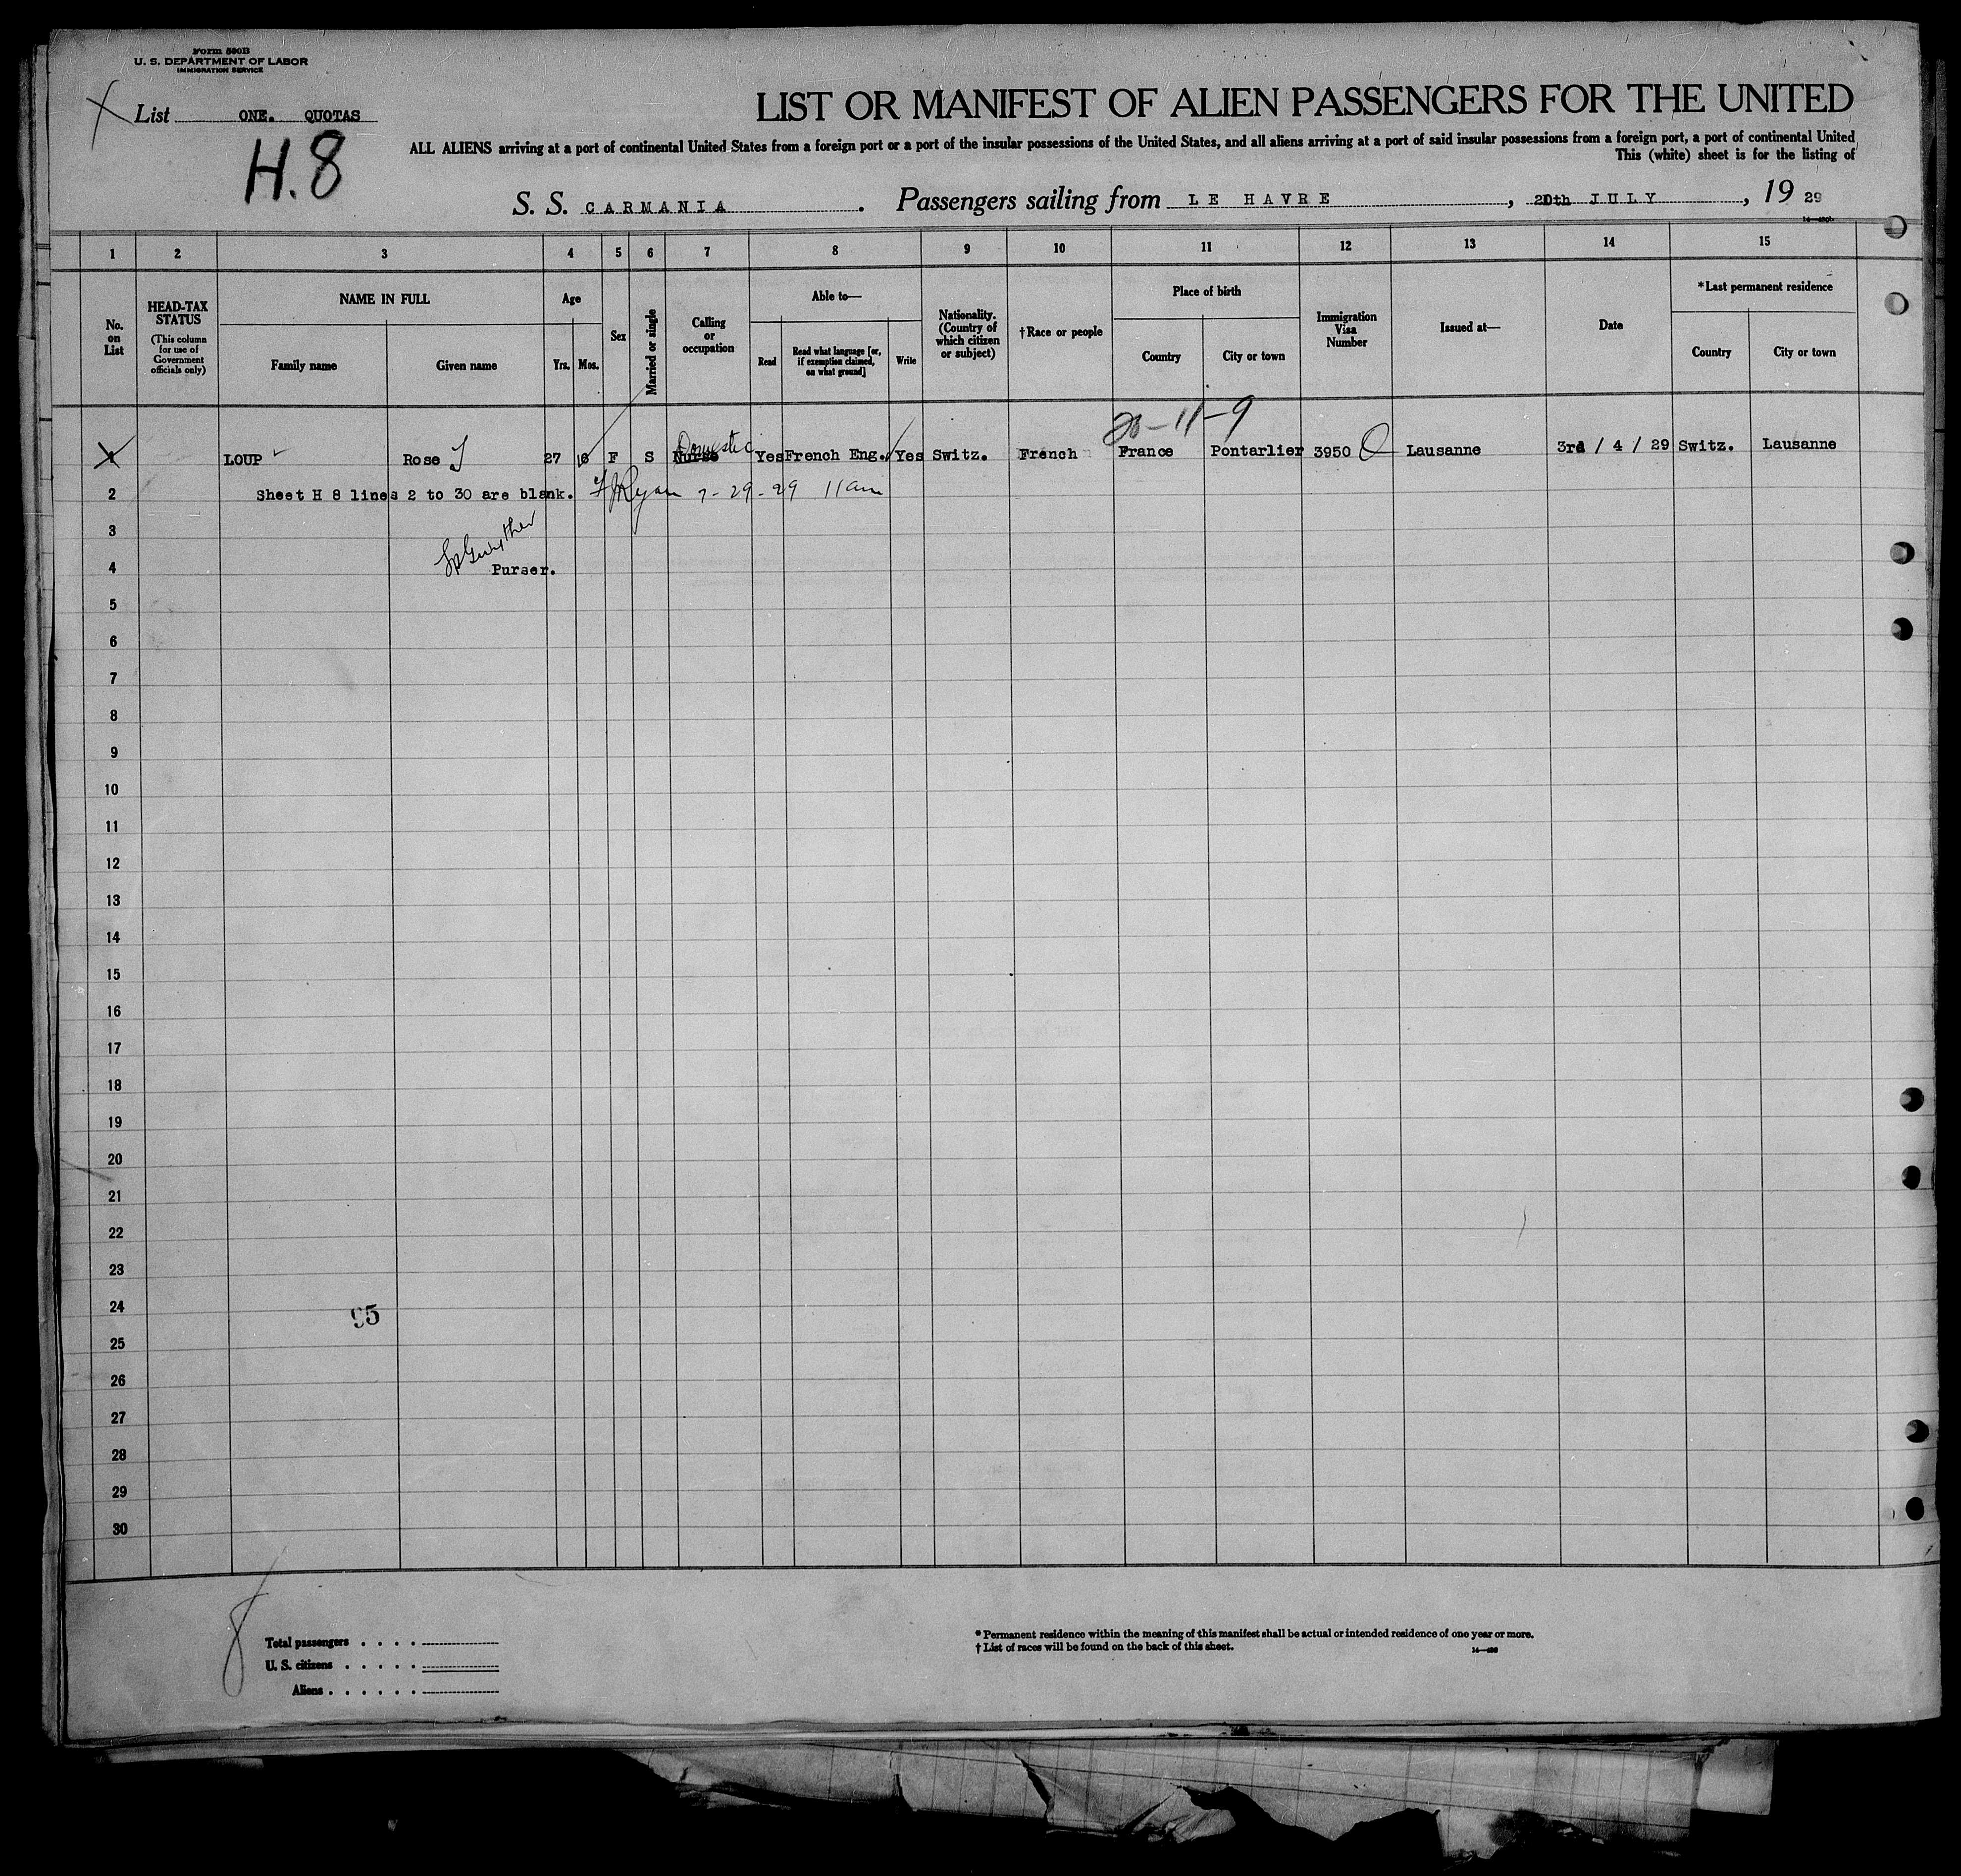 Form 500B
U. S. DEPARTMENT OF LABOR
IMMIGRATION SERVICE
List ONE. QUOTAS
H.8
LIST OR MANIFEST OF ALIEN PASSENGERS FOR THE UNITED
ALL ALIENS arriving at a port of continental United States from a foreign port or a port of the insular possessions of the United States, and all aliens arriving at a port of said insular possessions from a foreign port, a port of continental United
This (white) sheet is for the listing of
S. S. CARMANIA. Passengers sailing from LE HAVRE, 20th JULY, 19 29
1 2 3 4 5 6 7 8 9 10 11 12 13 14 15
No. on List
HEAD-TAX STATUS (This column for use of Government officials only)
NAME IN FULL
Family name Given name
Age
Yrs. Mos.
Sex
Married or single
Calling or occupation
Able to—
Read Read what language [or, if exemption claimed, on what ground] Write
Nationality. (Country of which citizen or subject)
†Race or people
Place of birth
Country City or town
Immigration Visa Number
Issued at—
Date
*Last permanent residence
Country City or town
Domestic
1 LOUP Rose 27 F S Nurse Yes French Eng. Yes Switz. French France Pontarlier 3950 Lausanne 3rd / 4 / 29 Switz. Lausanne
2 Sheet H 8 lines 2 to 30 are blank. Ryan 7-29-29 11am
3
4 Purser.
5
6
7
8
9
10
11
12
13
14
15
16
17
18
19
20
21
22
23
24
95
25
26
27
28
29
30
Total passengers . . . .
U. S. citizens . . . . .
Aliens . . . . . .
* Permanent residence within the meaning of this manifest shall be actual or intended residence of one year or more.
† List of races will be found on the back of this sheet.